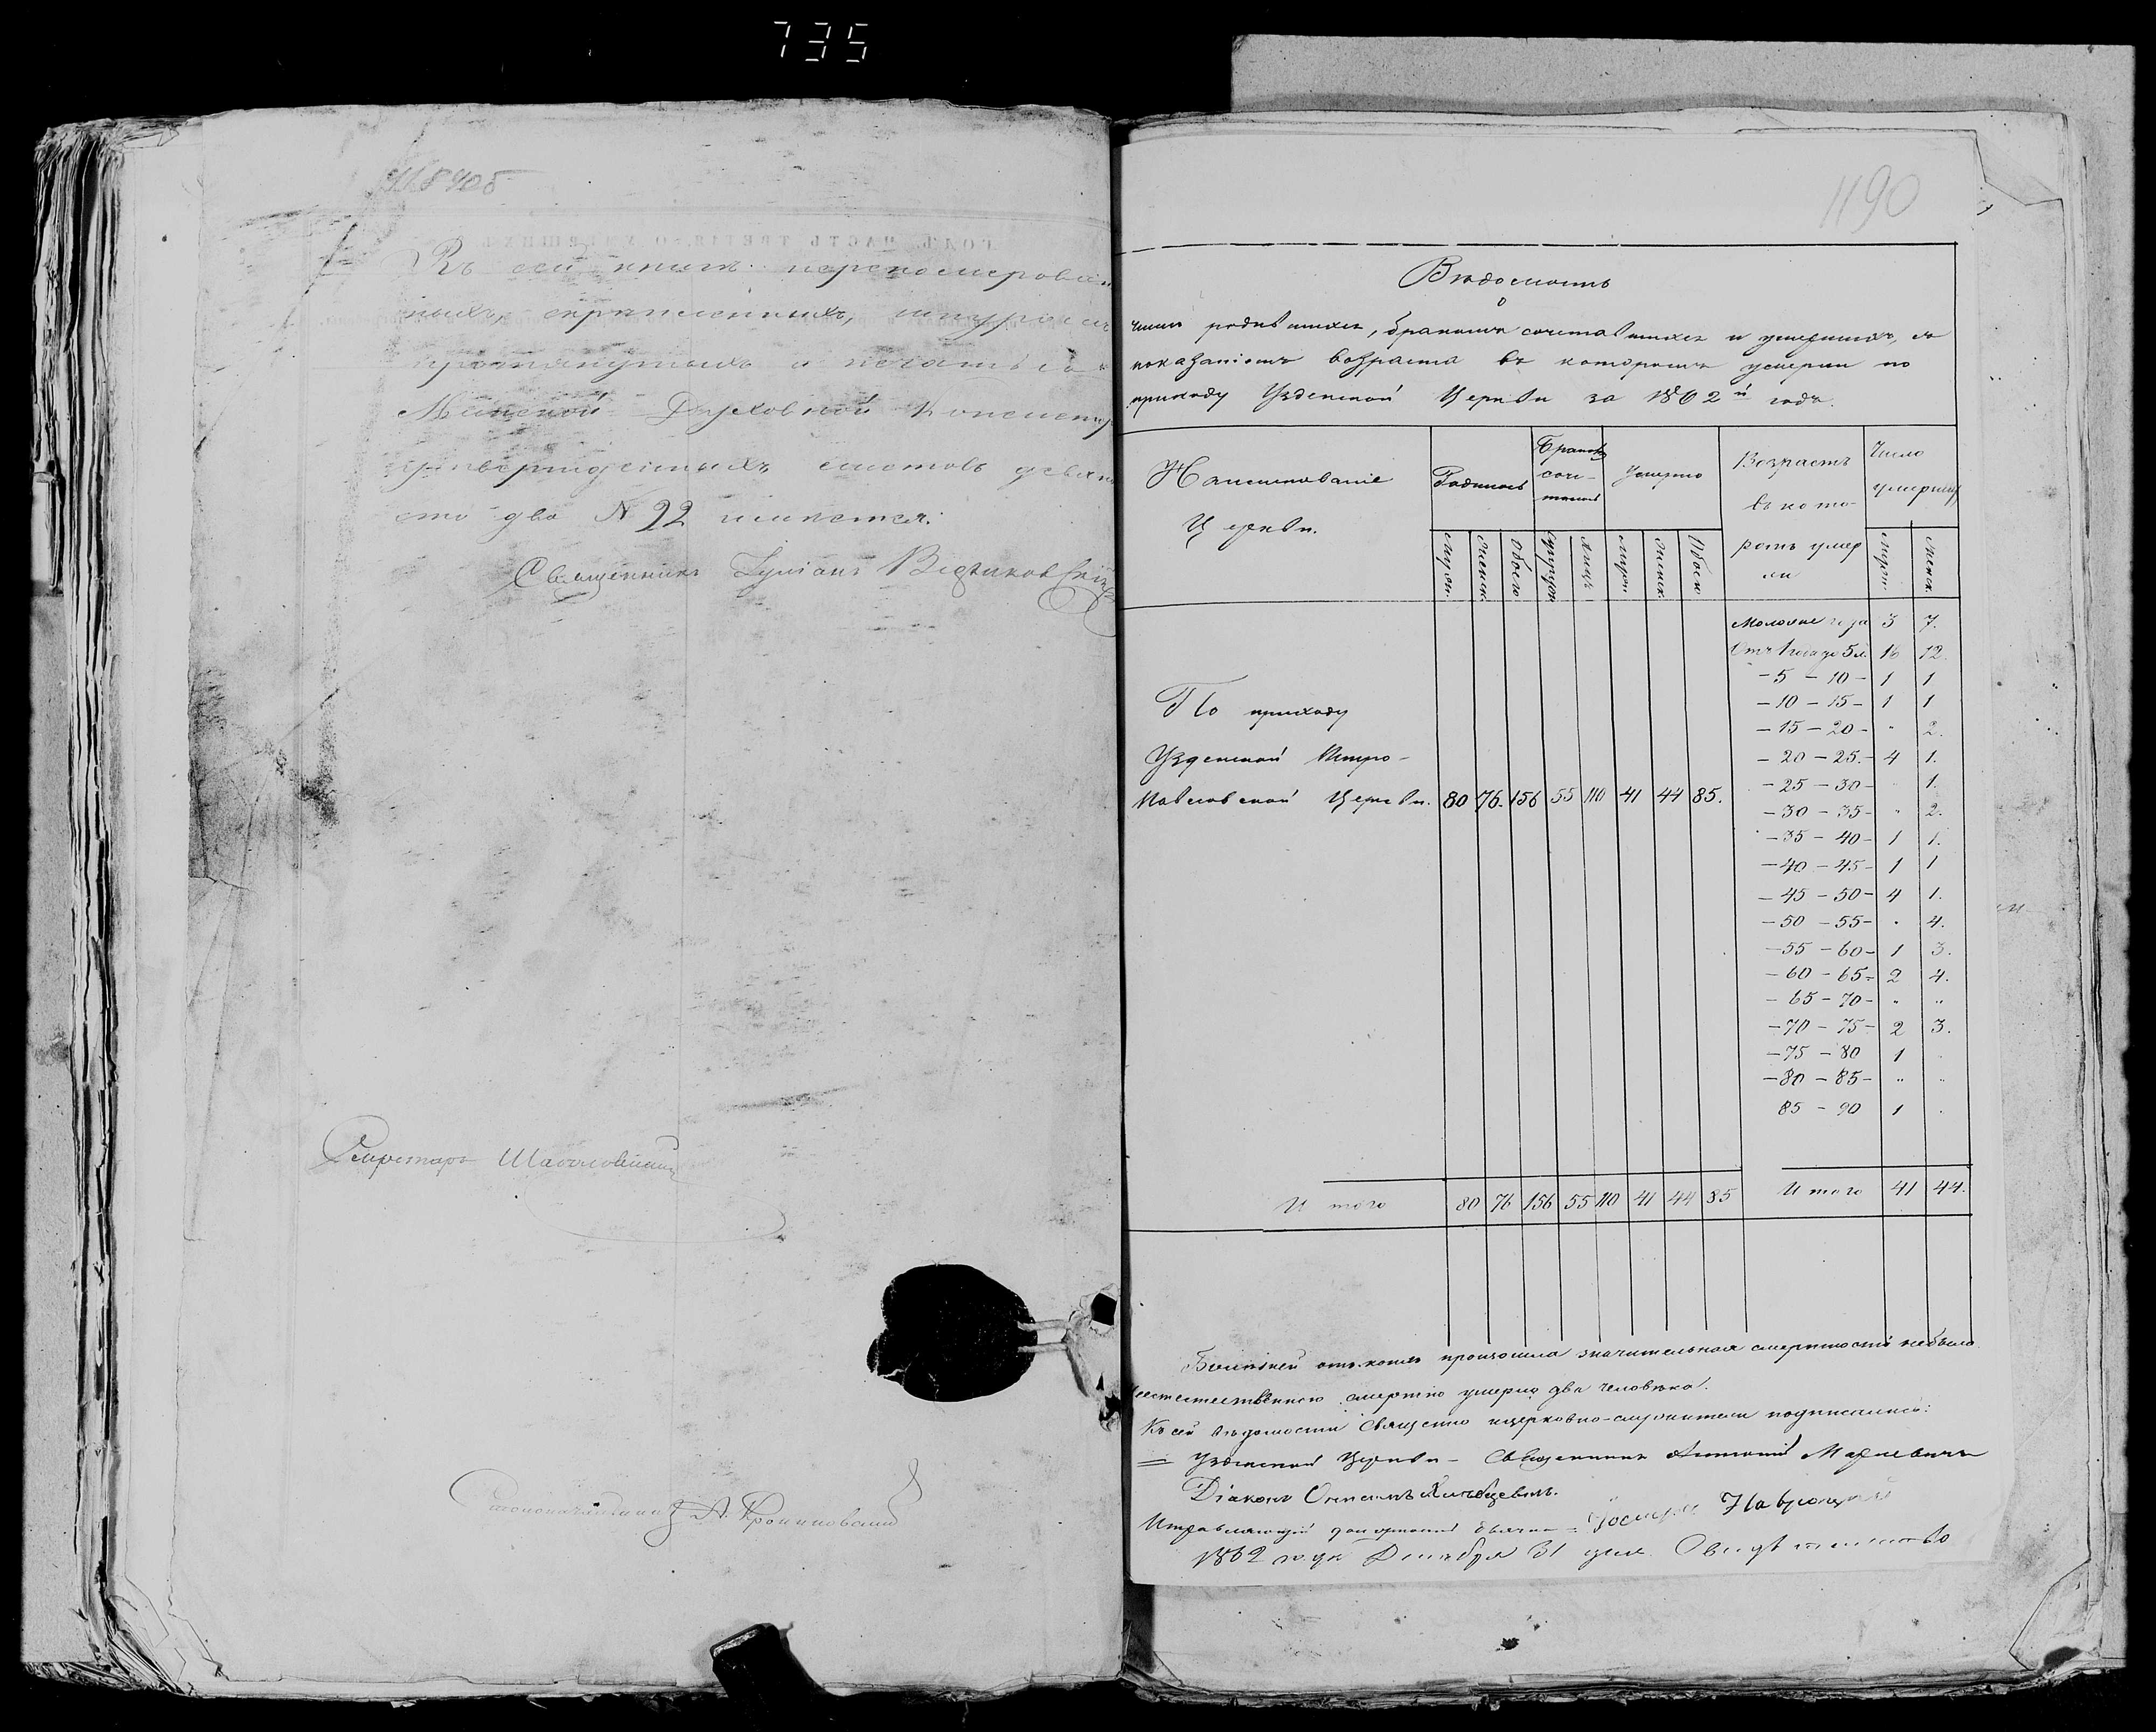 735
Въ сей книгѣ перепомерован
ныхъ, скрѣпленныхъ, шнуромъ
протянутыхъ и печатью
Минской Духовной Консистор
утвержденныхъ листовъ девяно
сто два № 92 имѣется.
Священникъ
Секретарь
Столоначальникъ А.
1190
Вѣдомость
о
числѣ родившихся, бракомъ сочетавшихся и умершихъ, съ
показаніемъ возраста въ которомъ умерли по
приходу Узденской Церкви за 1862й годъ.
Наименованіе Церкви.
Родилось
Браковъ соче-
Умерло
Возрастъ въ кото-ромъ умерли
Число умершихъ
Мужск. Женск. Обоего Супруж. Лицъ Мужс. Женск. Обоего Мужс. Женск.
Моложе года 3 7.
Отъ 1 года до 5 л. 16 12.
-5 - 10 - 1 1
По приходу
-10 - 15 - 1 1
-15 - 20 - " 2.
Узденской Петро-
-20 - 25. - 4 1.
-25 - 30 - 1.
Павловской Церкви. 80 76. 156 55 110 41 44 85.
-30 - 35 - " 2.
-35 - 40 - 1 1.
-40 - 45 - 1 1
-45 - 50 - 4 1.
-50 - 55 - " 4.
-55 - 60 - 1 3.
-60 - 65 - 2 4.
-65 - 70 - " "
-70 - 75 - 2 3.
-75 - 80 1 .
-80 - 85 - " "
85 - 90 1 .
Итого 80 76 156 55 110 41 44 85 Итого 41 44.
Болѣзней отъ коихъ произошла значительная смертность небыло
неестественною смертію умерло два человѣка.
Къ сей вѣдомости Священно ицерковно-служители подписались:
Узденской Церкви - Священникъ Антоній
Діаконъ
Исправляющій должность дьячка
1862 года Декабря 31 дня.